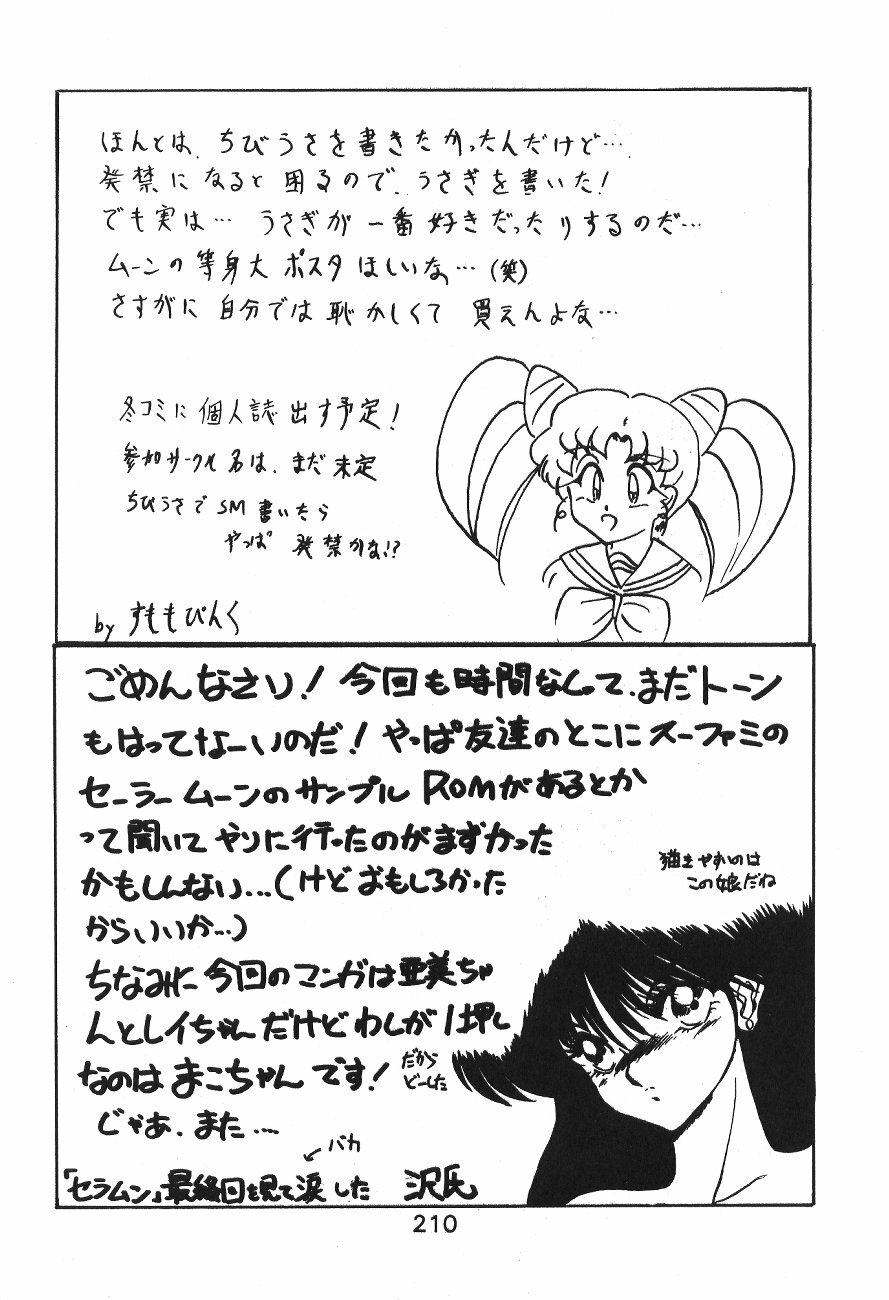 ほんとは、ちびうさを書きたかったんだけど…
発禁になると困るので、うさぎを書いた！
でも実は… うさぎが一番好きだったりするのだ…
ムーンの等身大ポスタほしいな…(笑)
さすがに自分では恥かしくて買えんよな…
冬コミに個人誌出す予定！
参加サークル名は、まだ未定
ちびうさでSM書いたら
やっぱ発禁かな!?
by すももぴんく
ごめんなさい！今回も時間なくって、まだトーン
もはってなーいのだ！やっぱ友達のとこにスーファミの
セーラームーンのサンプルROMがあるとか
って聞いてやりに行ったのがまずかった
かもしんない…(けどおもしろかった
からいいか…)
ちなみに今回のマンガは亜美ちゃ
んとレイちゃんだけどわしが1押し
なのはまこちゃんです！
だから
どーした
じゃあ、また…
バカ
「セラムン」最終回を見て涙した 沢氏
猫きやすいのは
この娘だね
210